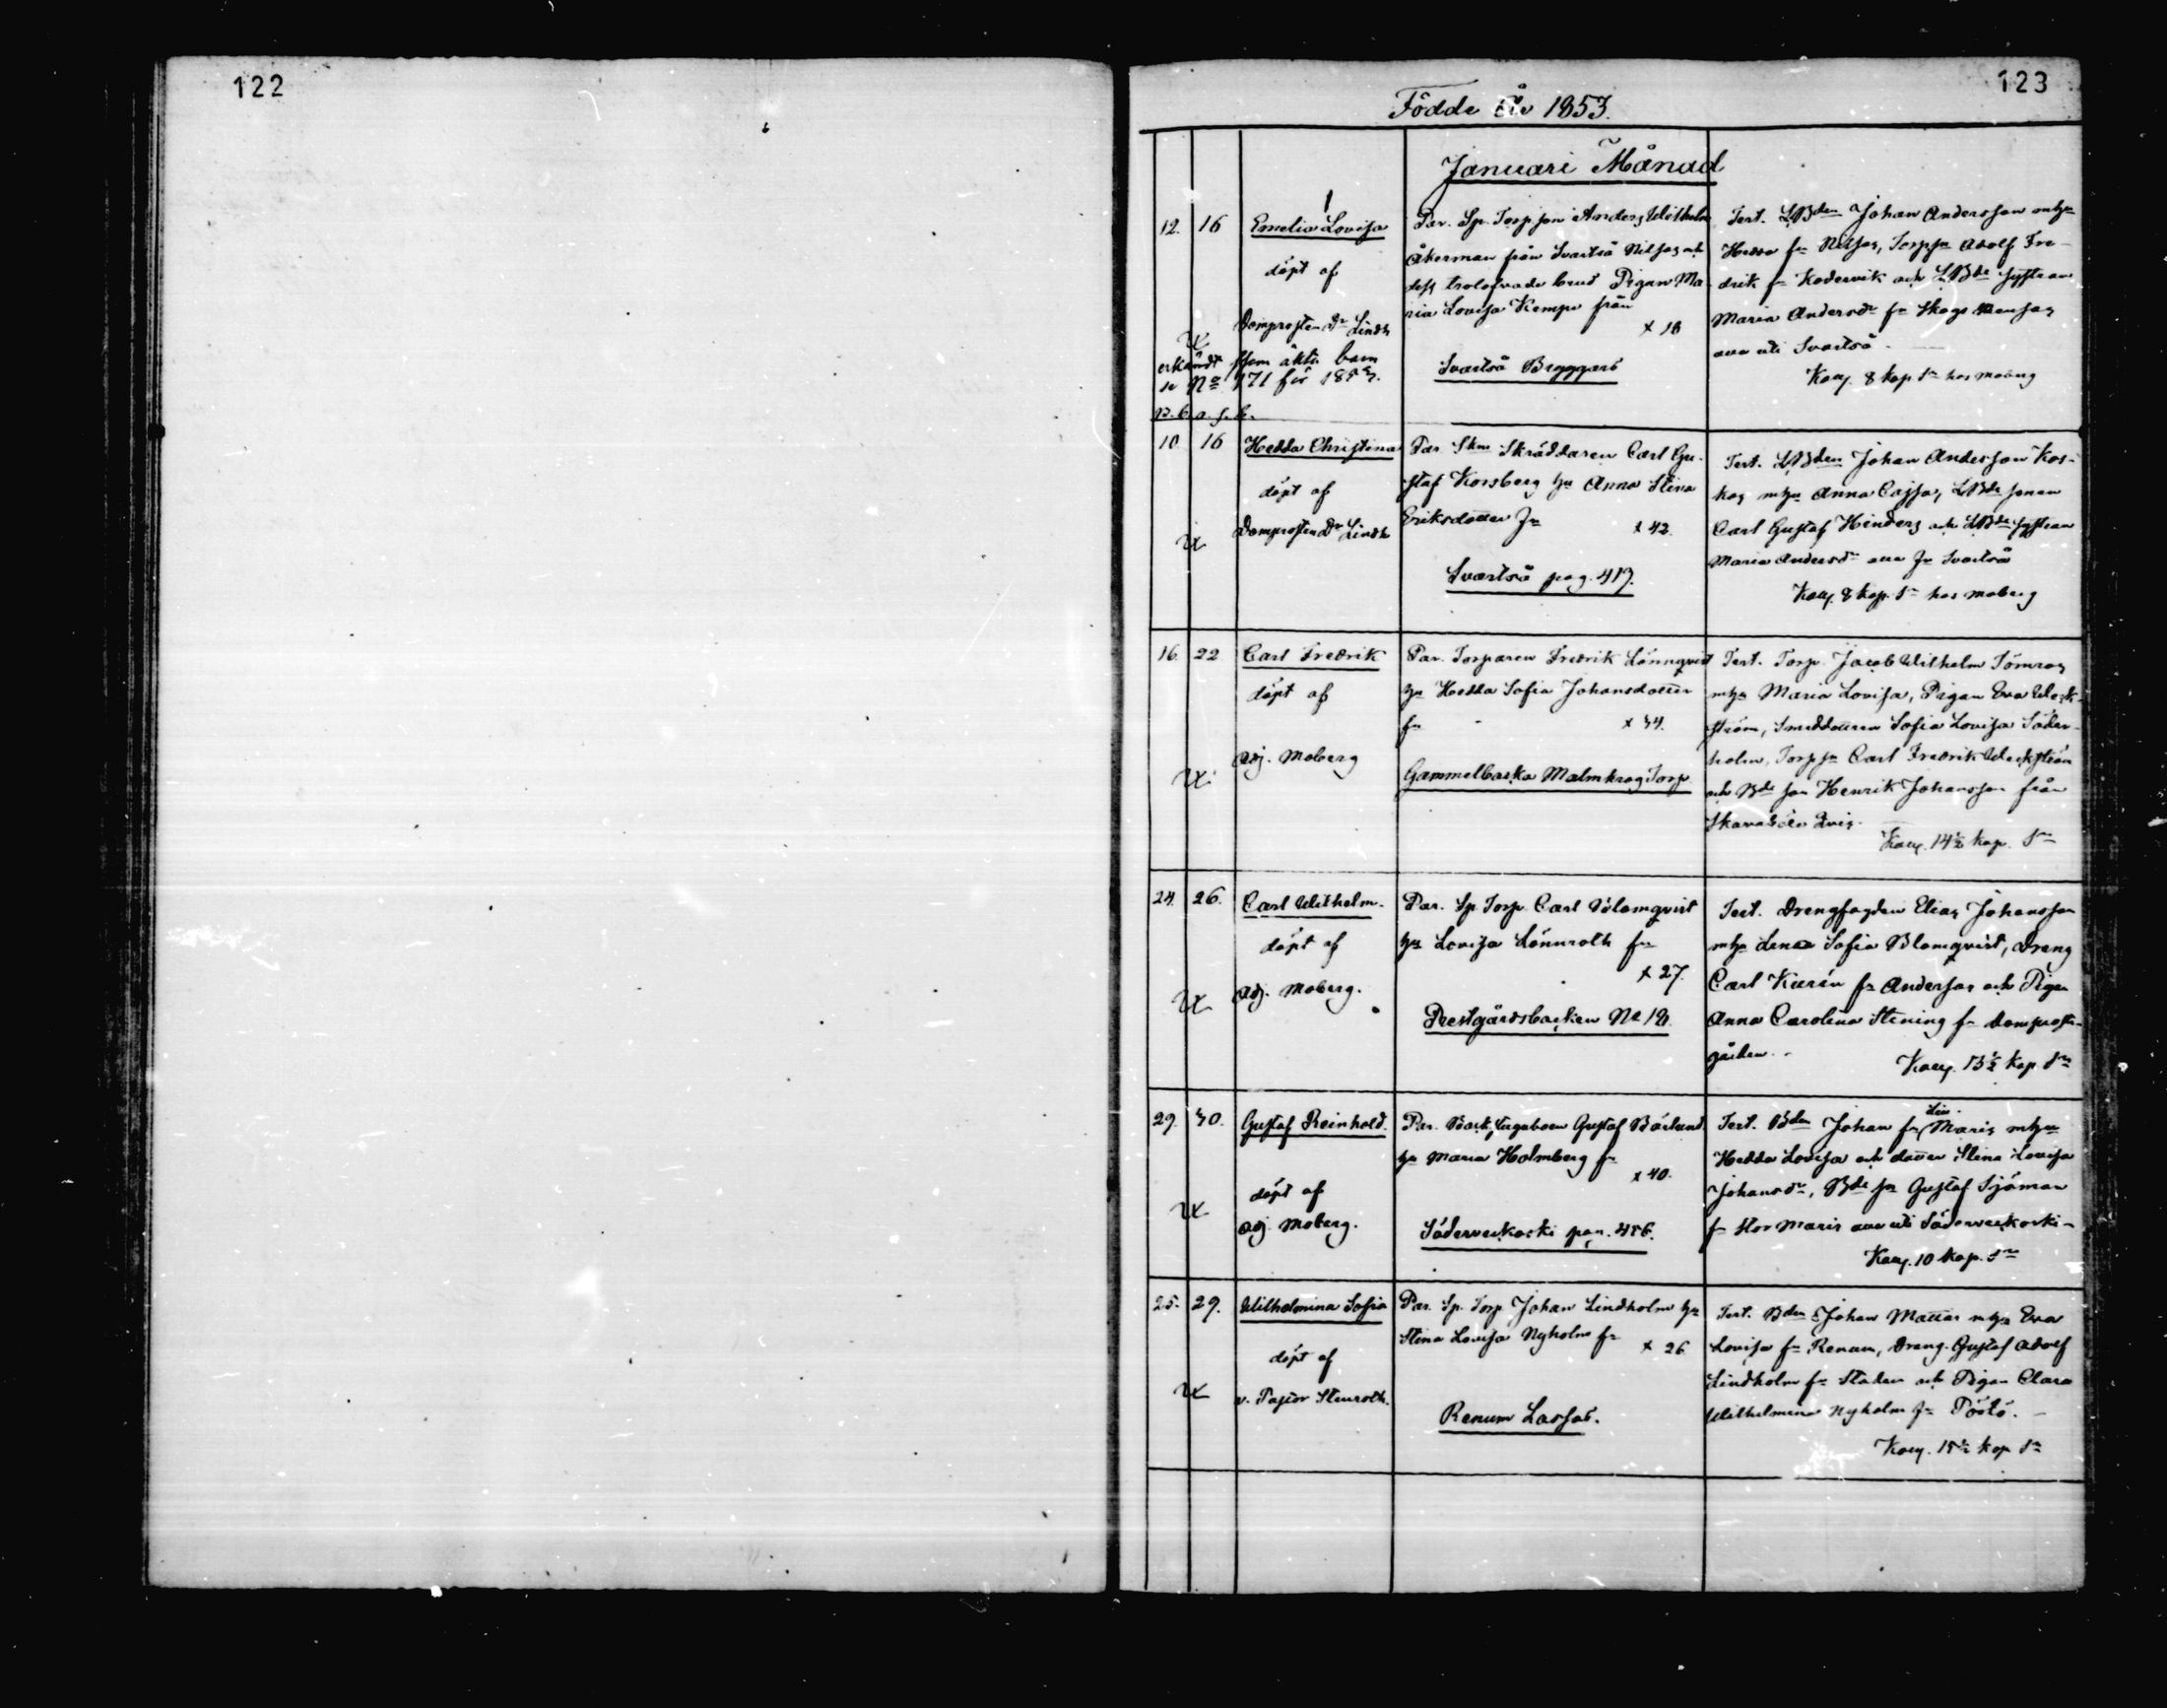 122
123
Födde År 1853.
Januari Månad
12. 16 Emelia Lovisa
döpt af
Domprosten Dr Lindh
erkändt som äkta barn
se No 171 för 1853.
Par. Sp. Torp. son Anders Wilhelm
Åkerman från Svartså Nilsas och
dess trolofvade brud Pigan Ma-
ria Lovisa Kempe från
x 18
Svartså Bryggars
Test. LBden Johan Andersson m hu
Hedda fr. Nilsas, Torp. sn Adolf Fre-
drik fr. Kodervik och LBde hustrun
Maria Andersdr fr. Skogs
aua uti Svartså.
Kauf. 8 kop. Sr hos Moberg
10 16 Hedda Christina
döpt af
Domprosten Dr Lindh
Par. Skm Skräddaren Carl Gu-
staf Korsberg hu Anna Stina
Eriksdotter fr
x 42.
Svartså pag. 417.
Test. LBden Johan Andersson Kos-
kas m hu Anna Cajsa, LBde sonen
Carl Gustaf Hinders och LBde hustrun
Maria Andersdr aua fr Svartså
Kauf. 8 kop. Sr hos Moberg
16. 22 Carl Fredrik
döpt af
Adj. Moberg
Par. Torparen Fredrik Lönnqvist
hu Hedda Sofia Johansdotter
fr x 34.
Gammelbacka Malmkrog Torp
Test. Torp. Jacob Wilhelm Tömros
m hu Maria Lovisa, Pigan Eva Weck-
ström, Smeddottren Sofia Lovisa Söder-
holm, Torp sn Carl Fredrik Weckström
och Bde son Henrik Johansson från
Kauf. 14½ kop. Sr
24. 26. Carl Wilhelm.
döpt af
Adj. Moberg.
Par. Sp. Torp. Carl Blomqvist
hu Lovisa Lönnroth fr
x 27.
Prestgårdsbacken No 18.
Test. Drengfogden Elias Johansson
m hu Lena Sofia Blomqvist, Dreng
Carl fr Andersas och Pigan
Anna Carolina Stening fr Domprost-
gården.
Kauf. 13½ kop. Sr
29. 30. Gustaf Reinhold.
döpt af
Adj. Moberg.
Par. Backstugaboen Gustaf Bärlund
hu Maria Holmberg fr
x 40.
Söderveckoski pag. 456.
Test. Bden Johan fr Lill Maris m hu
Hedda Lovisa och dotter Stina Lovisa
Johansdr, Bde sn Gustaf Sjöman
fr Stor Maris aua uti Söderveckoski.
Kauf. 10 kop. Sr
25. 29. Wilhelmina Sofia
döpt af
v. Pastor Stenroth.
Par. Sp. Torp. Johan Lindholm hu
Stina Lovisa Nyholm fr
x 26
Renum Lassas.
Test. Bden Johan Mattas m hu Eva
Lovisa fr Renum, Dreng. Gustaf Adolf
Lindholm fr Staden och Pigan Clara
Wilhelmina Nyholm fr Töötö.
Kauf. 15½ kop Sr